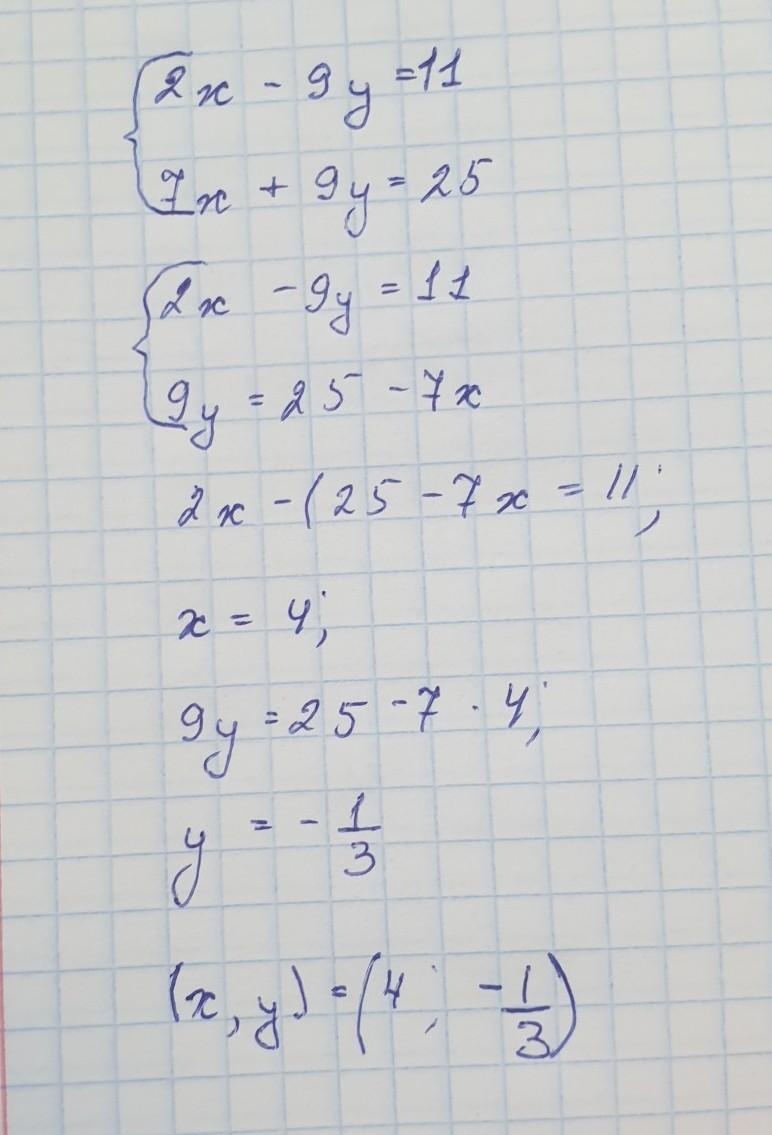 2x - 9y = 11
7x + 9y = 25
2x - 9y = 11
9y = 25 - 7x
2x - (25 - 7x = 11;
x = 4;
9y = 25 - 7 · 4;
y = - 1/3
(x, y) = (4; - 1/3)